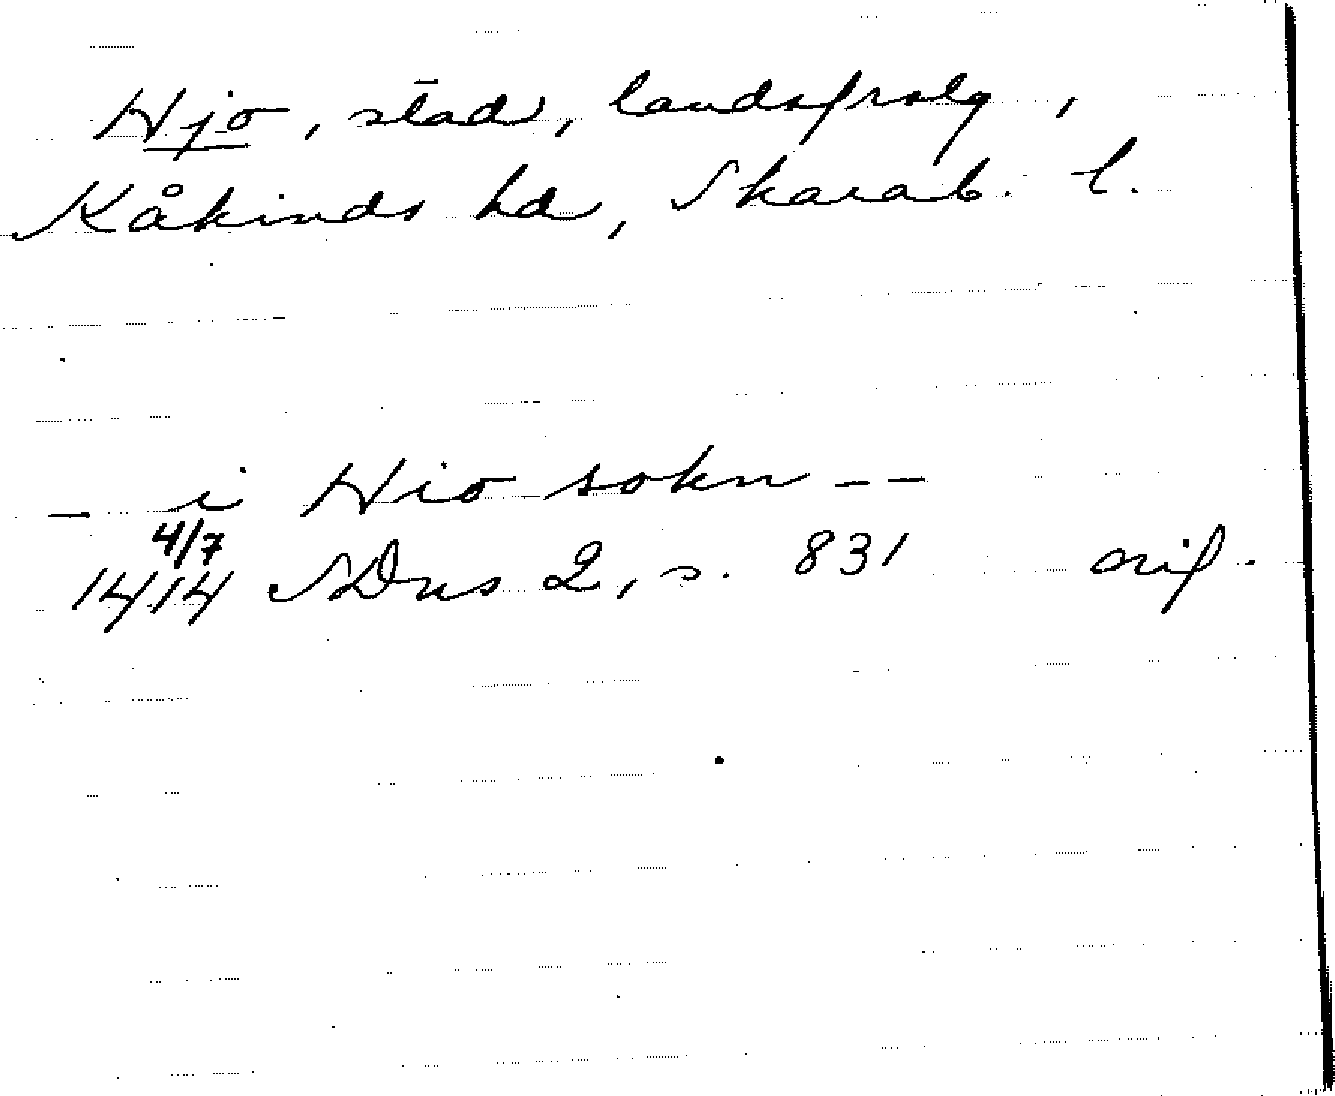 Hjo, stad, landsförslg,
Kåkinds hd, Skarab. l.
– i Hio sokn – –
4/7
1414 SDns 2, s. 831 orig.